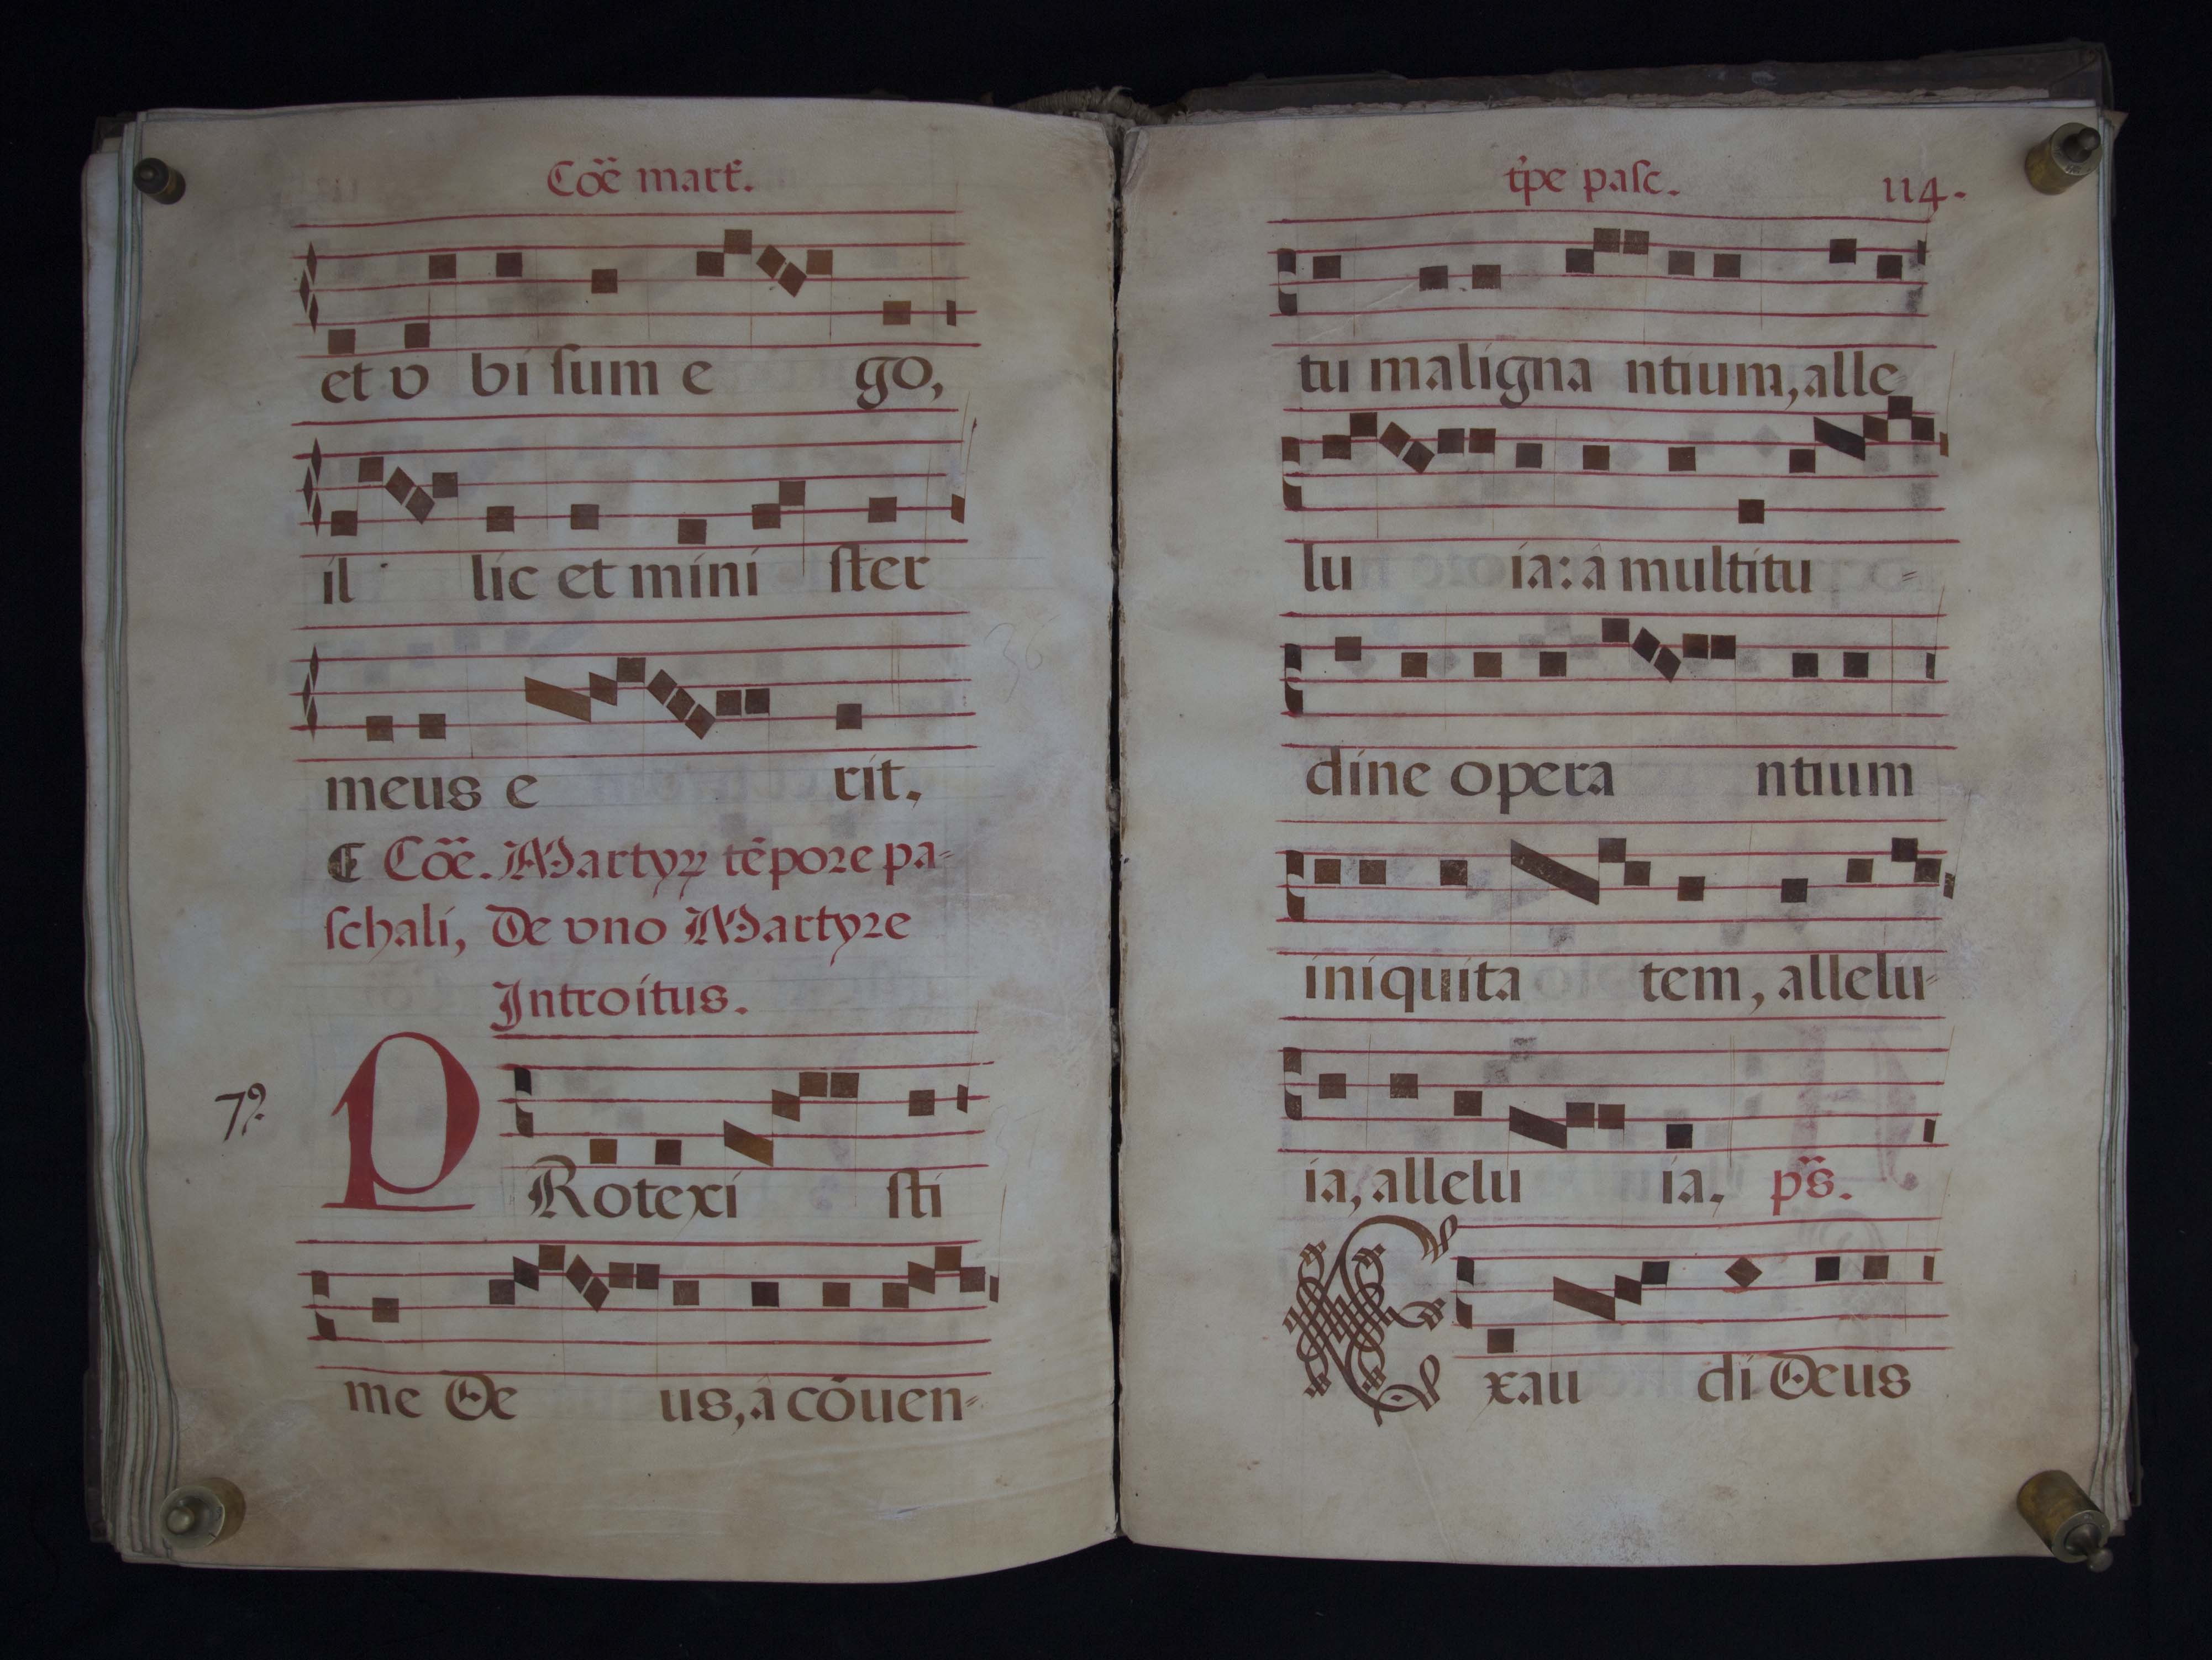 Cõẽ mart.
et v bi ſum e go,
il lic et mini ſter
meus e rit.
¶ Cõẽ. Martyrꝝ tẽpore pa-
ſchali, De vno Martyre
Introitus.
7º.
PRotexi ſti
me De us, â cõuen-
tp̃e paſc. 114.
tu maligna ntium, alle-
lu ia: â multitu-
dine opera ntium
iniquita tem, allelu-
ia, allelu ia. ps̃.
Exau di Deus